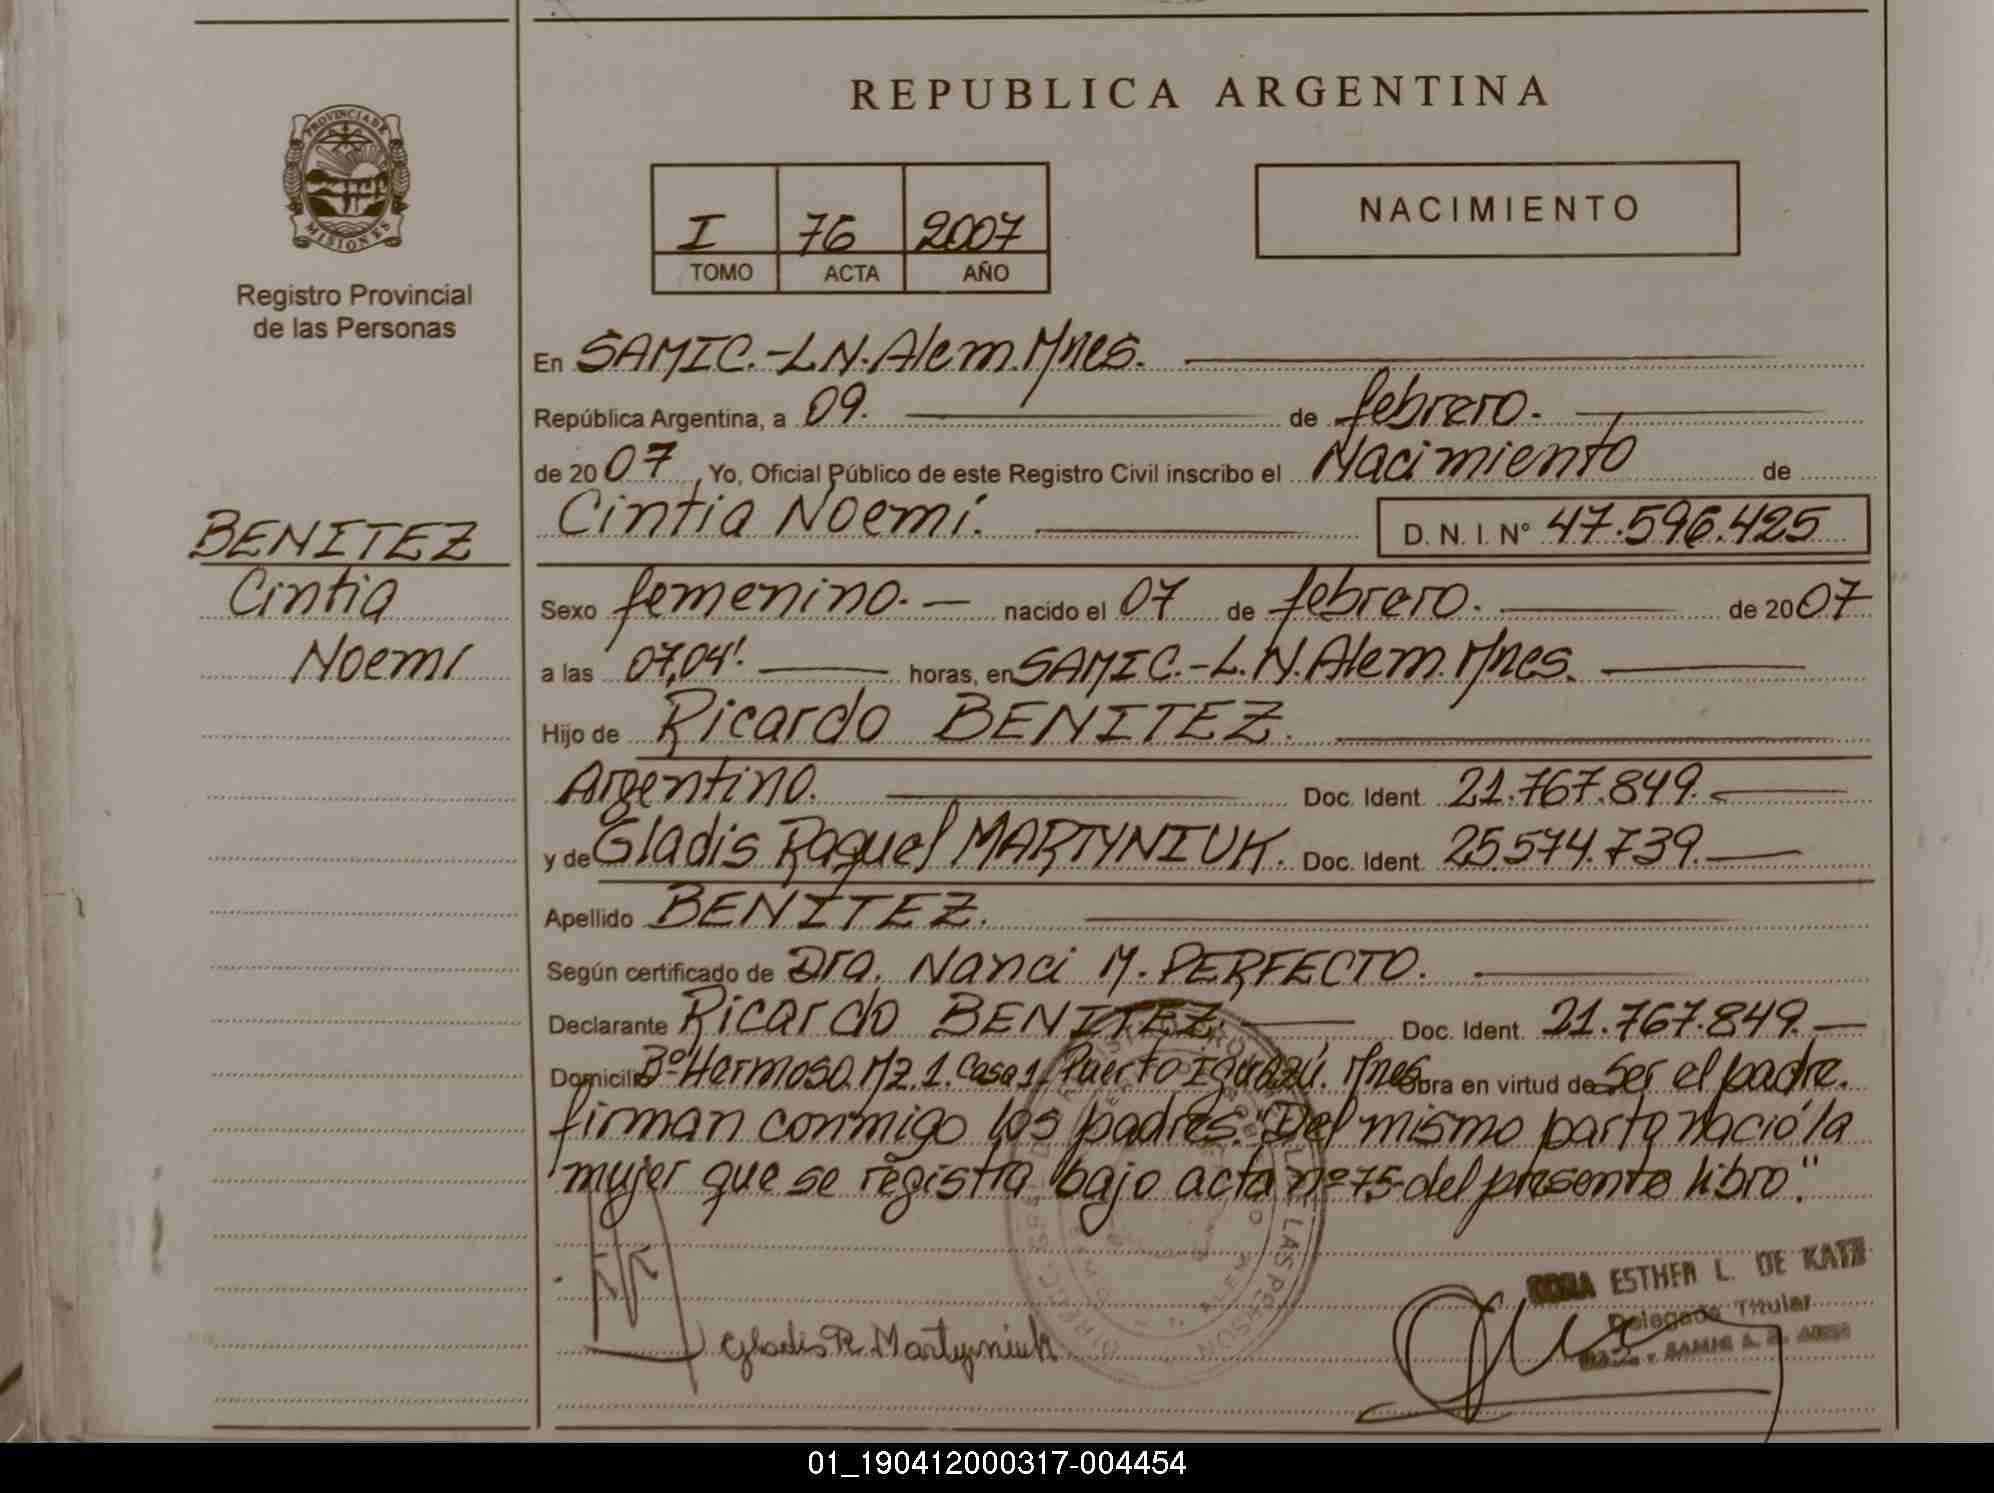 REPUBLICA ARGENTINA
PROVINCIA DE MISIONES
Registro Provincial
de las Personas
I 76 2007
TOMO ACTA AÑO
NACIMIENTO
En SAMIC.-L.N.Alem.Mnes.
República Argentina, a 09. de febrero.
de 2007, Yo, Oficial Público de este Registro Civil inscribo el Nacimiento de
Cintia Noemí. D. N. I. Nº 47.596.425
BENITEZ
Cintia
Noemí
Sexo femenino. nacido el 07 de febrero. de 2007
a las 07,04'. horas, en SAMIC.-L.N.Alem.Mnes.
Hijo de Ricardo BENITEZ.
Argentino. Doc. Ident. 21.767.849.
y de Gladis Raquel MARTYNIUK. Doc. Ident. 25.574.739.
Apellido BENITEZ.
Según certificado de Dra. Nanci M. PERFECTO.
Declarante Ricardo BENITEZ. Doc. Ident. 21.767.849.
Domicilio Bº Hermoso. Mz. 1. Casa 1. Puerto Iguazú. Mnes. Obra en virtud de ser el padre.
firman conmigo los padres. "Del mismo parto nació la
mujer que se registra bajo acta nº 75 del presente libro."
Gladis R. Martyniuk
ESTHER L. DE KATZ
Delegada Titular
01_190412000317-004454